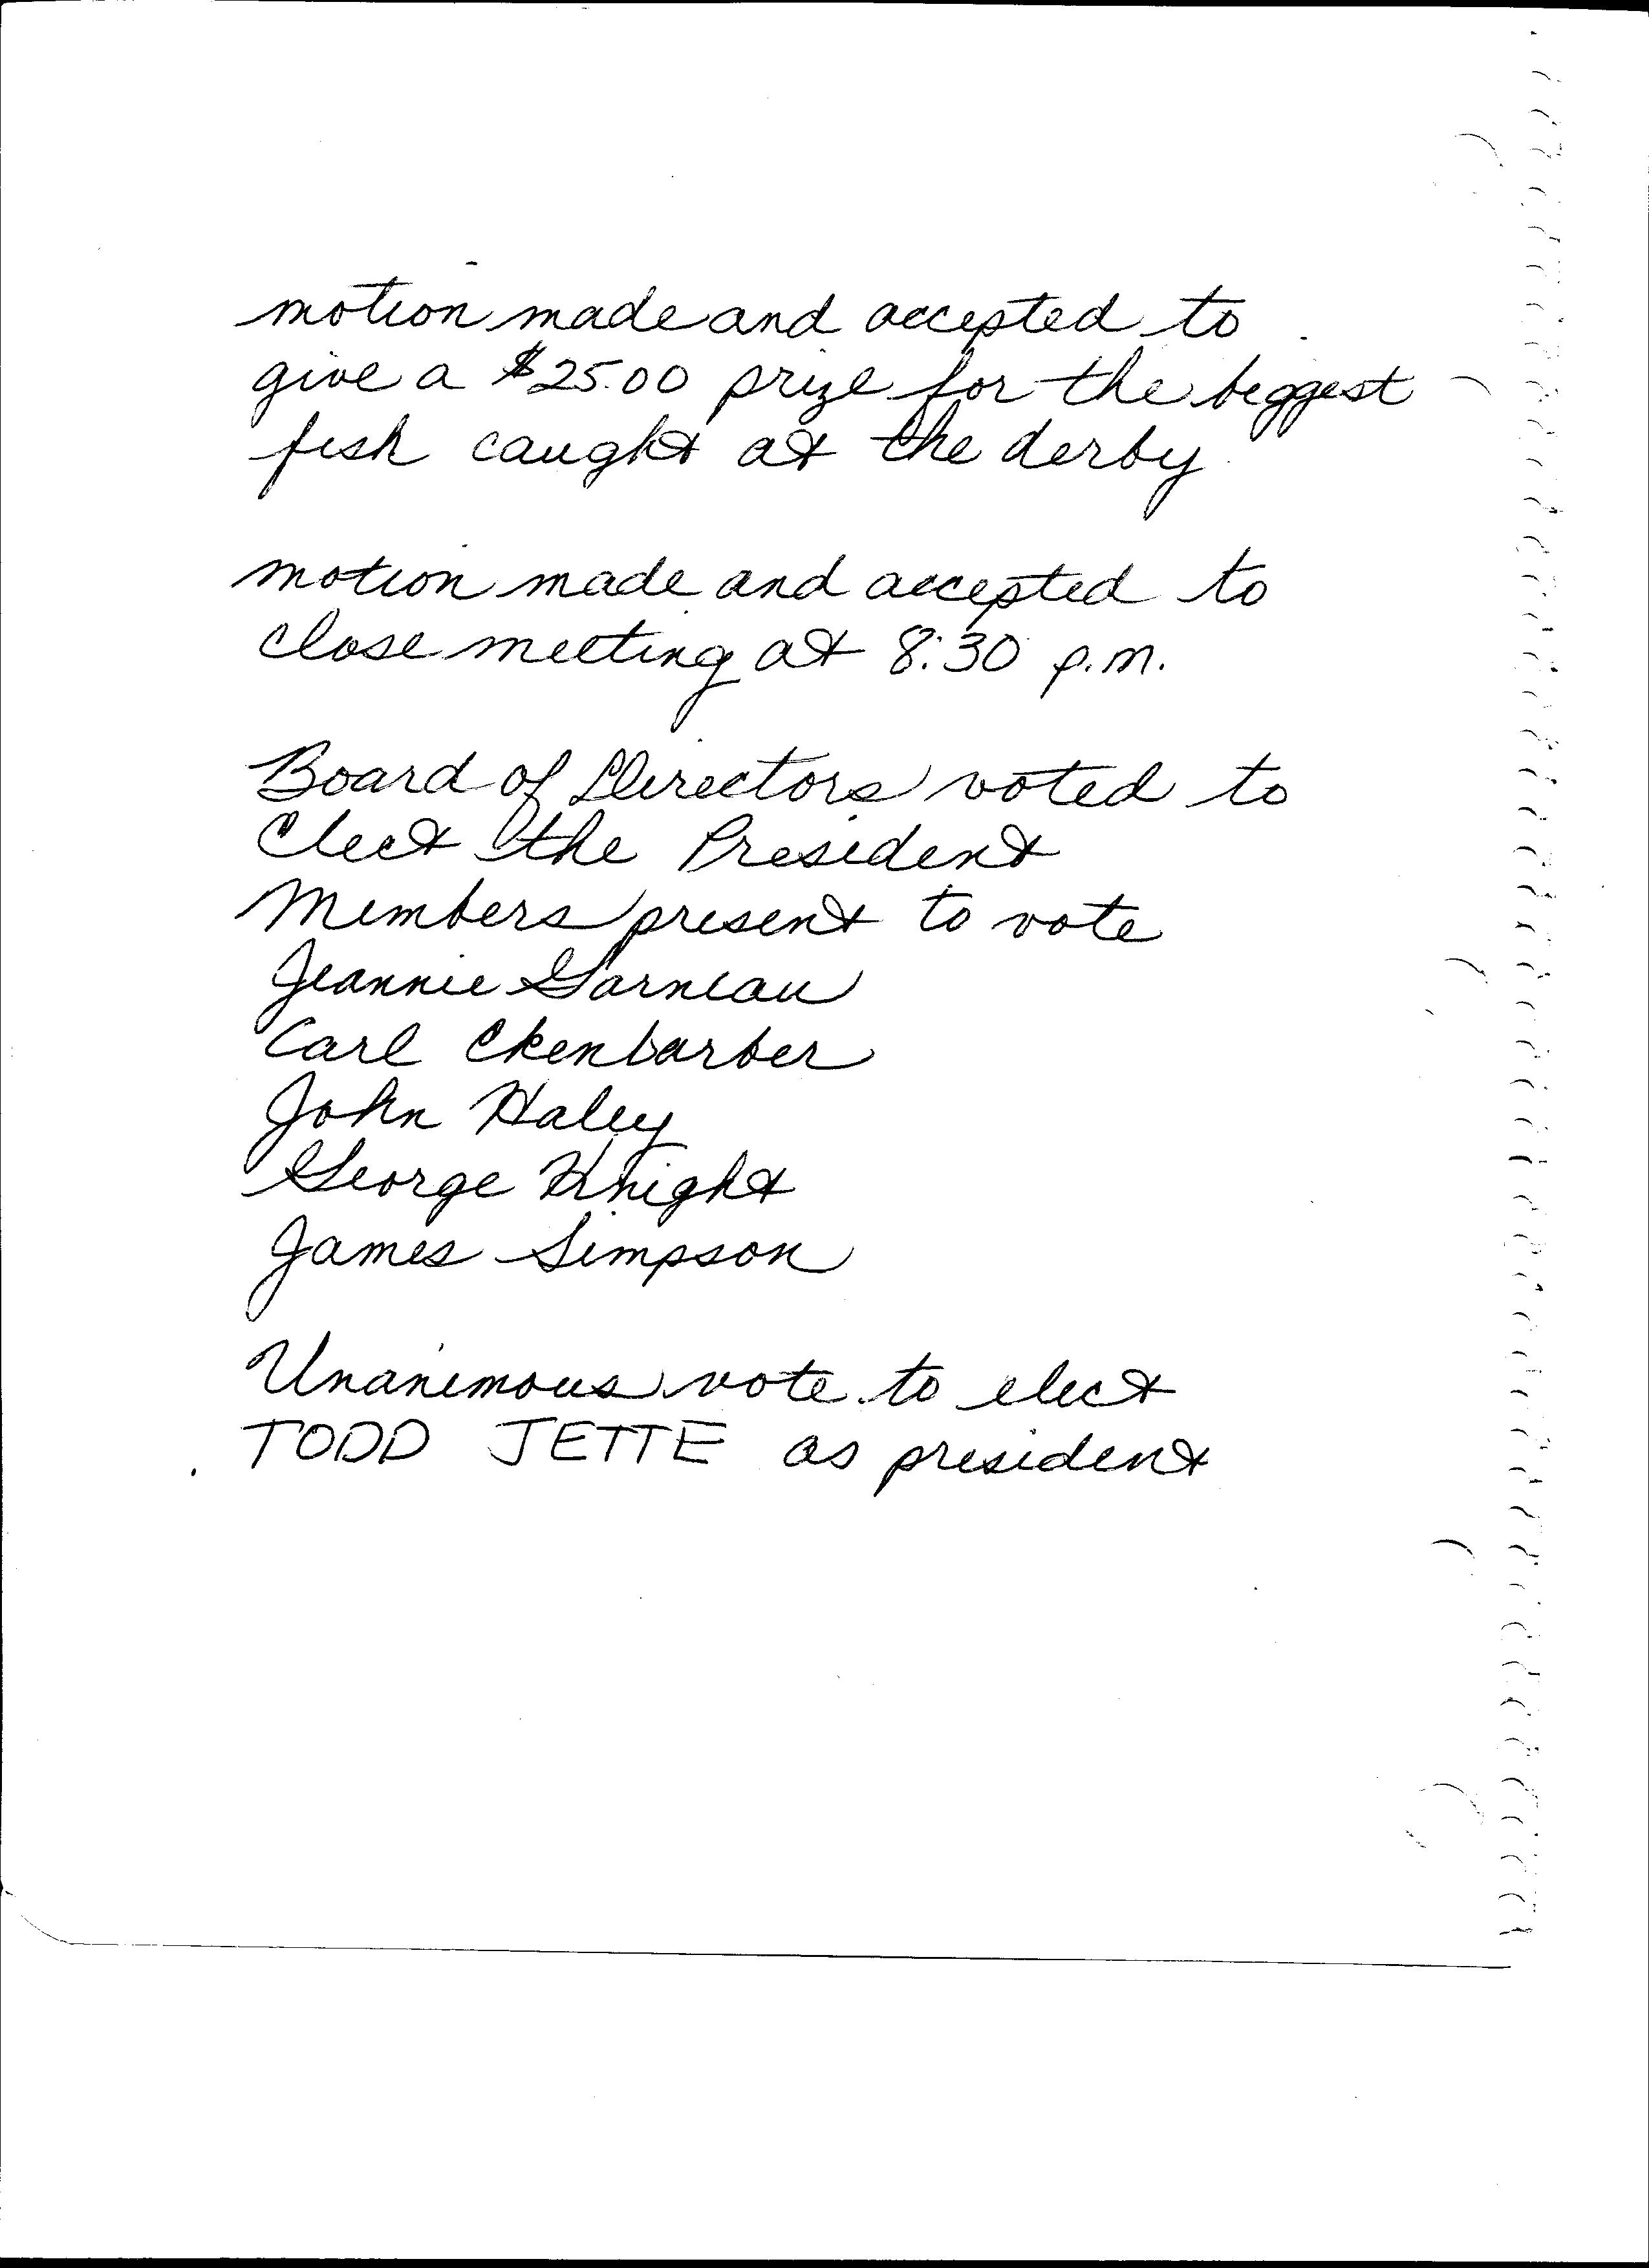 motion made and accepted to
give a $25.00 prize for the biggest
fish caught at the derby
motion made and accepted to
close meeting at 8:30 p.m.
Board of Directors voted to
elect the President
Members present to vote
Jeannie Garneau
Carl Ekenbarber
John Haley
George Knight
James Simpson
Unanimous vote to elect
TODD JETTE as president